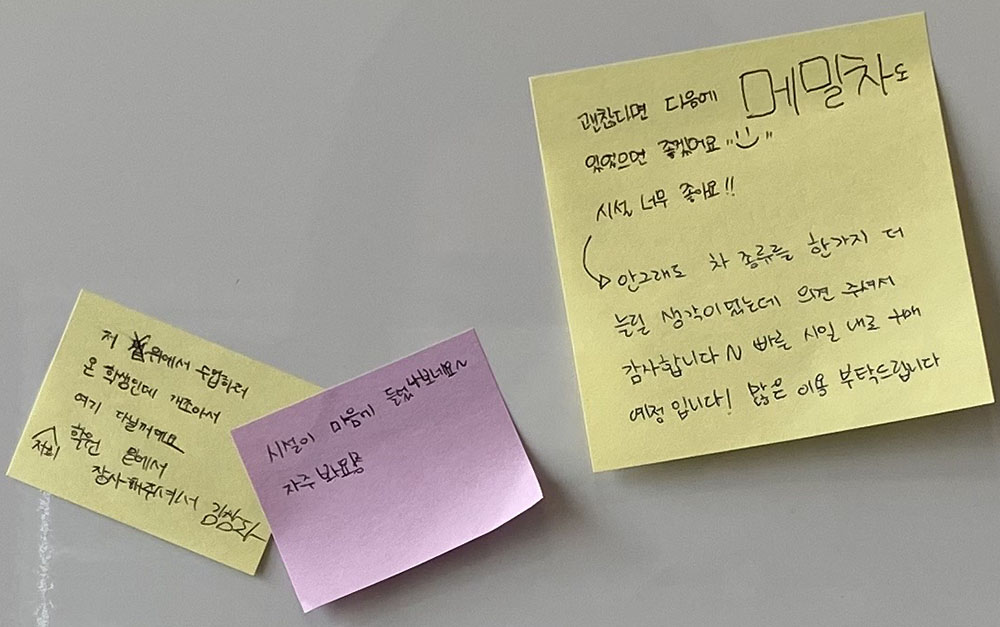 저 위에서 수업하러
온 학생인데 개조아서
여기 다닐꺼예요
저희 학원 은에서
장사해주셔서 김상다
시설이 마음에 들었나보네요~
자주 봐요용
괜찮다면 다음에 메밀차도
있었으면 좋겠어요 "U"
시설 너무 좋아요!!
안그래도 차 종류를 한가지 더
늘릴 생각이었는데 의견 주셔서
감사합니다 ~ 빠른 시일 내로 구매
예정입니다! 많은 이용 부탁드립니다